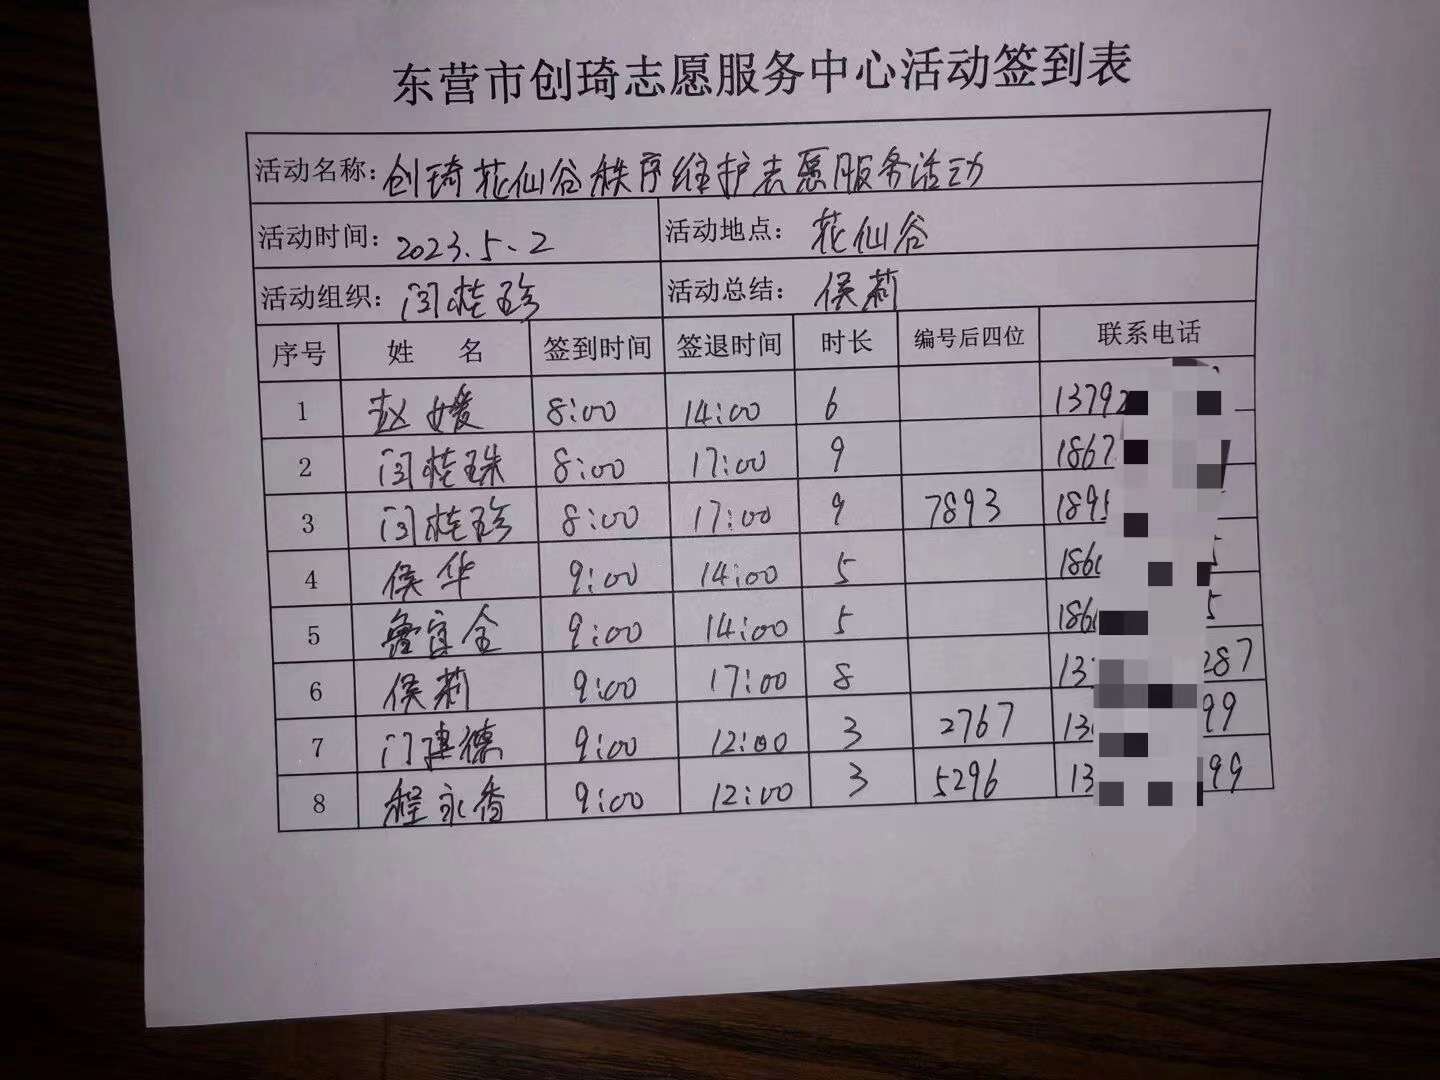 东营市创琦志愿服务中心活动签到表
活动名称：创琦花仙谷秩序维护志愿服务活动
活动时间：2023.5.2 活动地点：花仙谷
活动组织：闫桂珍 活动总结：侯莉
序号 姓 名 签到时间 签退时间 时长 编号后四位 联系电话
1 赵媛 8:00 14:00 6 1379
2 闫桂珠 8:00 17:00 9 1867
3 闫桂珍 8:00 17:00 9 7893 189
4 侯华 9:00 14:00 5 186 5
5 鲁宜金 9:00 14:00 5 186 5
6 侯莉 9:00 17:00 8 13 287
7 门建德 9:00 12:00 3 2767 13 99
8 程永香 9:00 12:00 3 5296 13 99